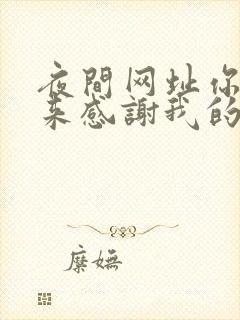 夜間网址你
来感謝我的
糜嫵